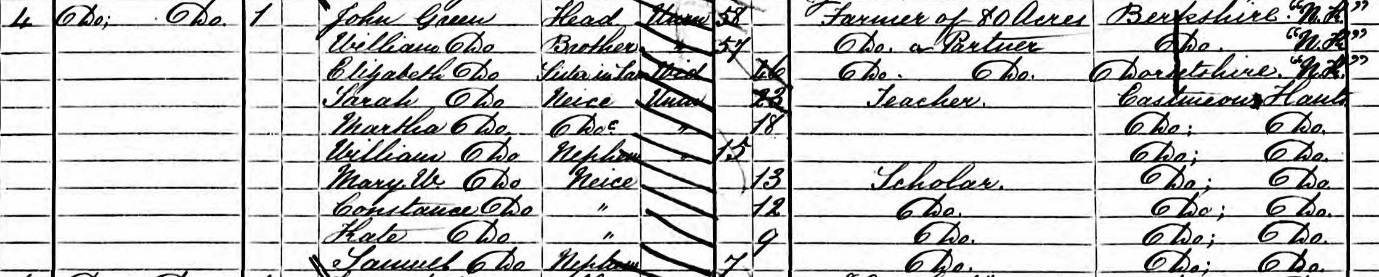 4 Do; Do. 1 John Green Head Unm 58 Farmer of 80 Acres Berkshire. "N.K"
William Do Brother " 57 Do. a Partner Do. "N.K"
Elizabeth Do Sister in Law Wid 46 Do. Do. Dorsetshire. "N.K."
Sarah Do Neice Unm 23 Teacher. Eastmeon Hants
Martha Do. Do " 18 Do; Do.
William Do Nephew " 15 Do; Do.
Mary. W. Do Neice 13 Scholar. Do; Do.
Constance Do " 12 Do. Do; Do.
Kate Do " 9 Do. Do; Do.
Samuel Do Nephew 7 Do. Do; Do.